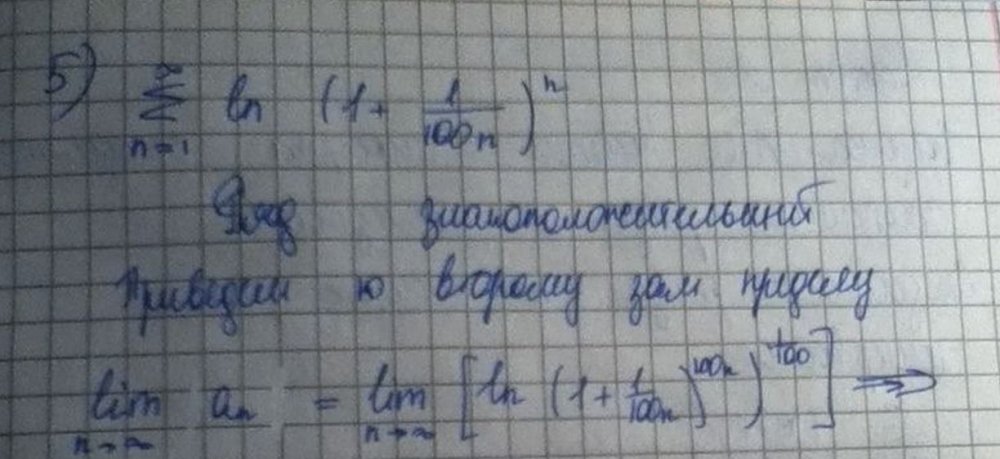 5) ∑_{n=1}^{∞} ln (1 + 1/100n)^n
Ряд знакоположительный
Приведём ко второму зам пределу
lim_{n→∞} a_n = lim_{n→∞} [ln (1 + 1/100n)^{100n})^{1/100}] ⇒